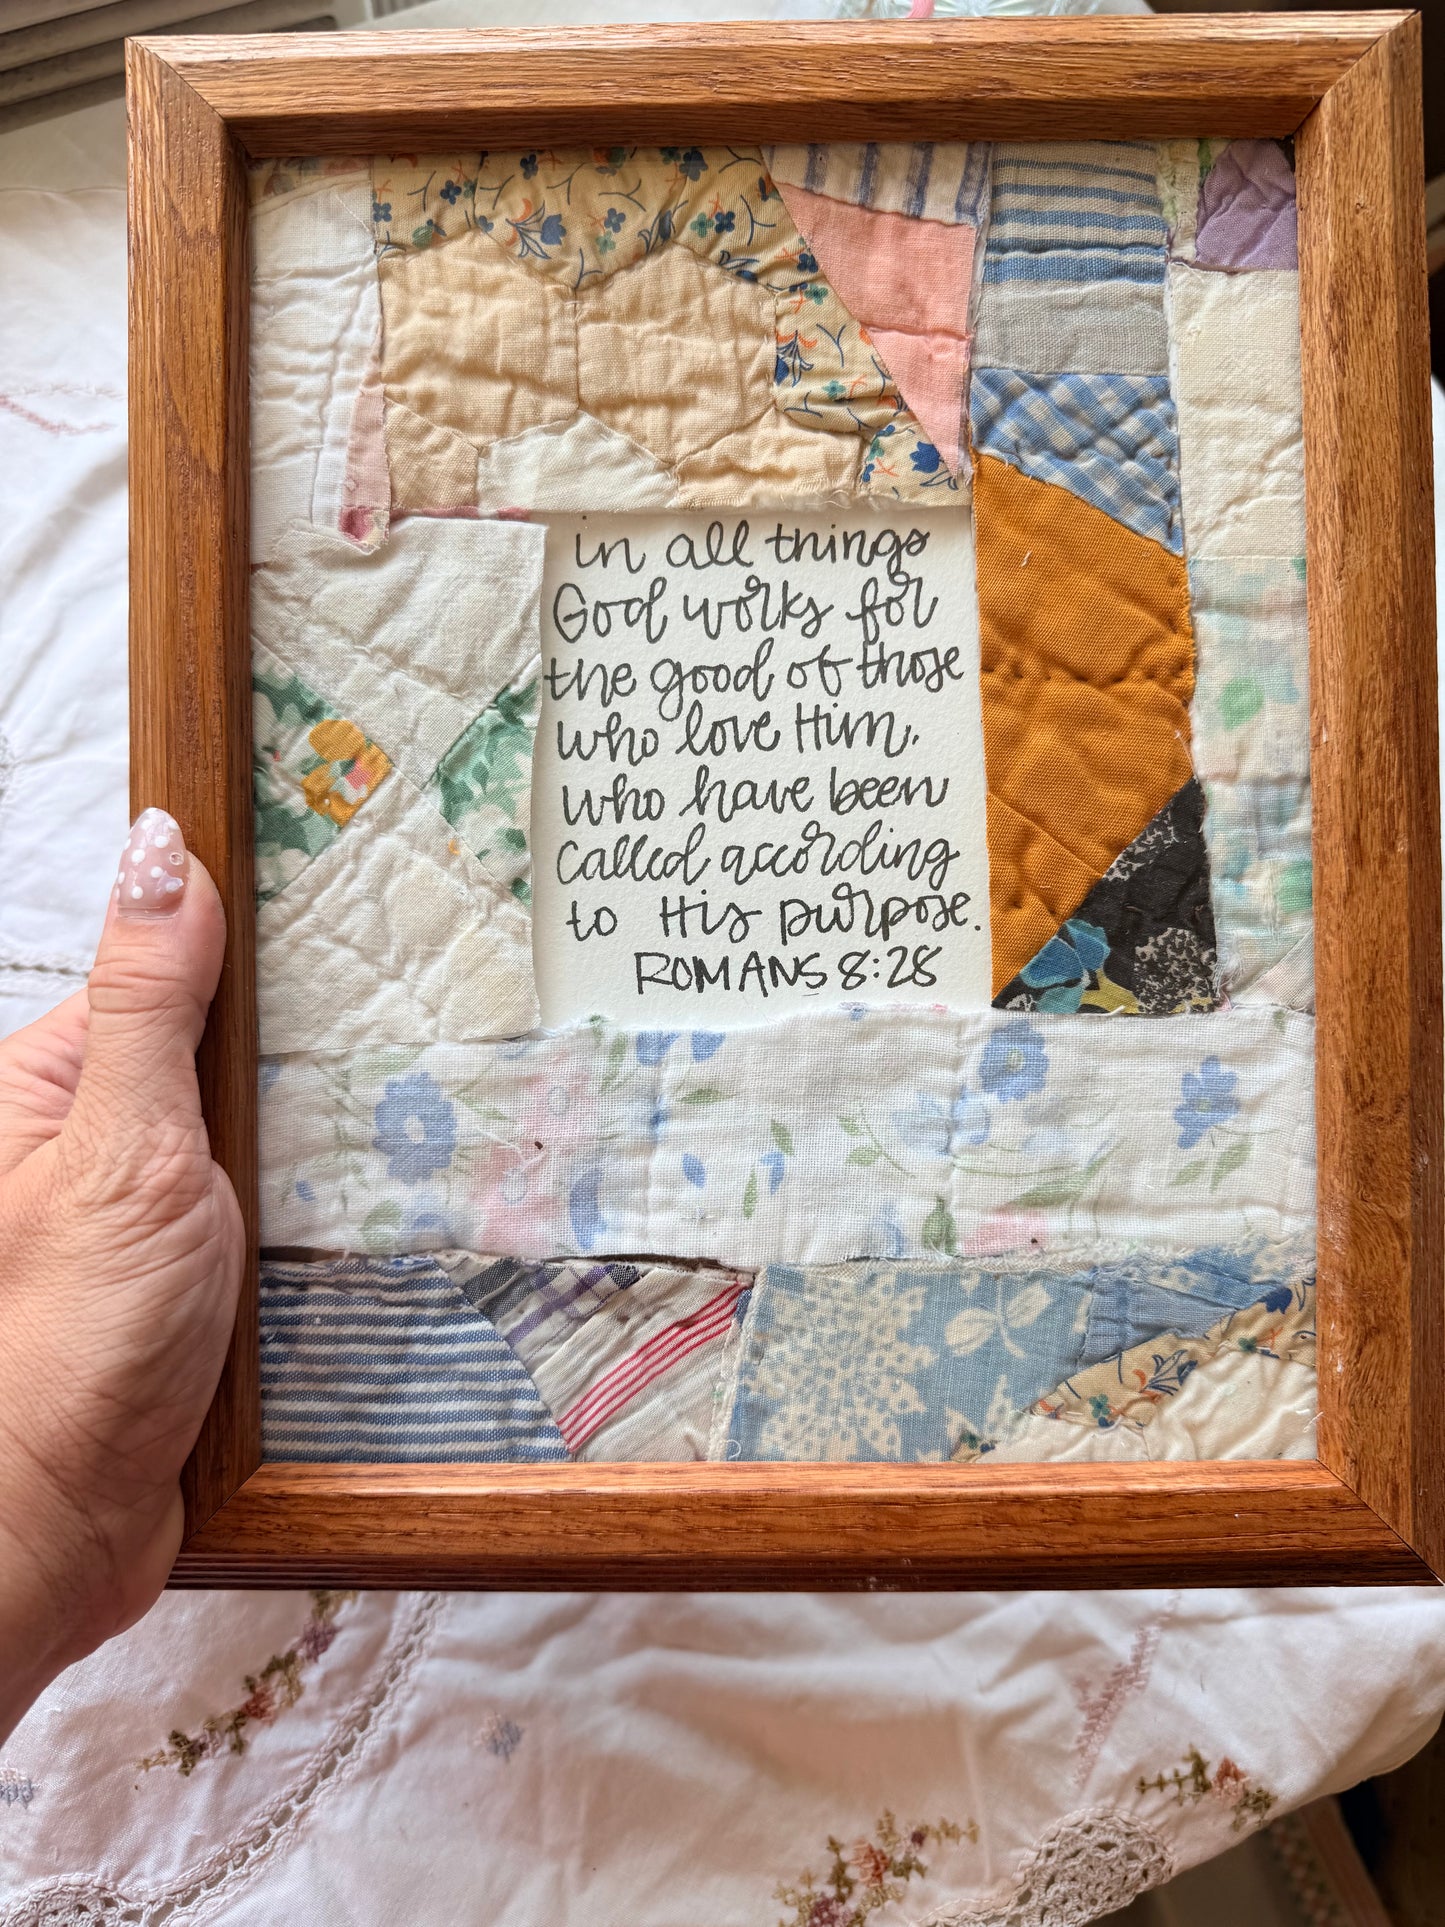 in all things
God works for
the good of those
who love Him,
who have been
called according
to His purpose.
ROMANS 8:28